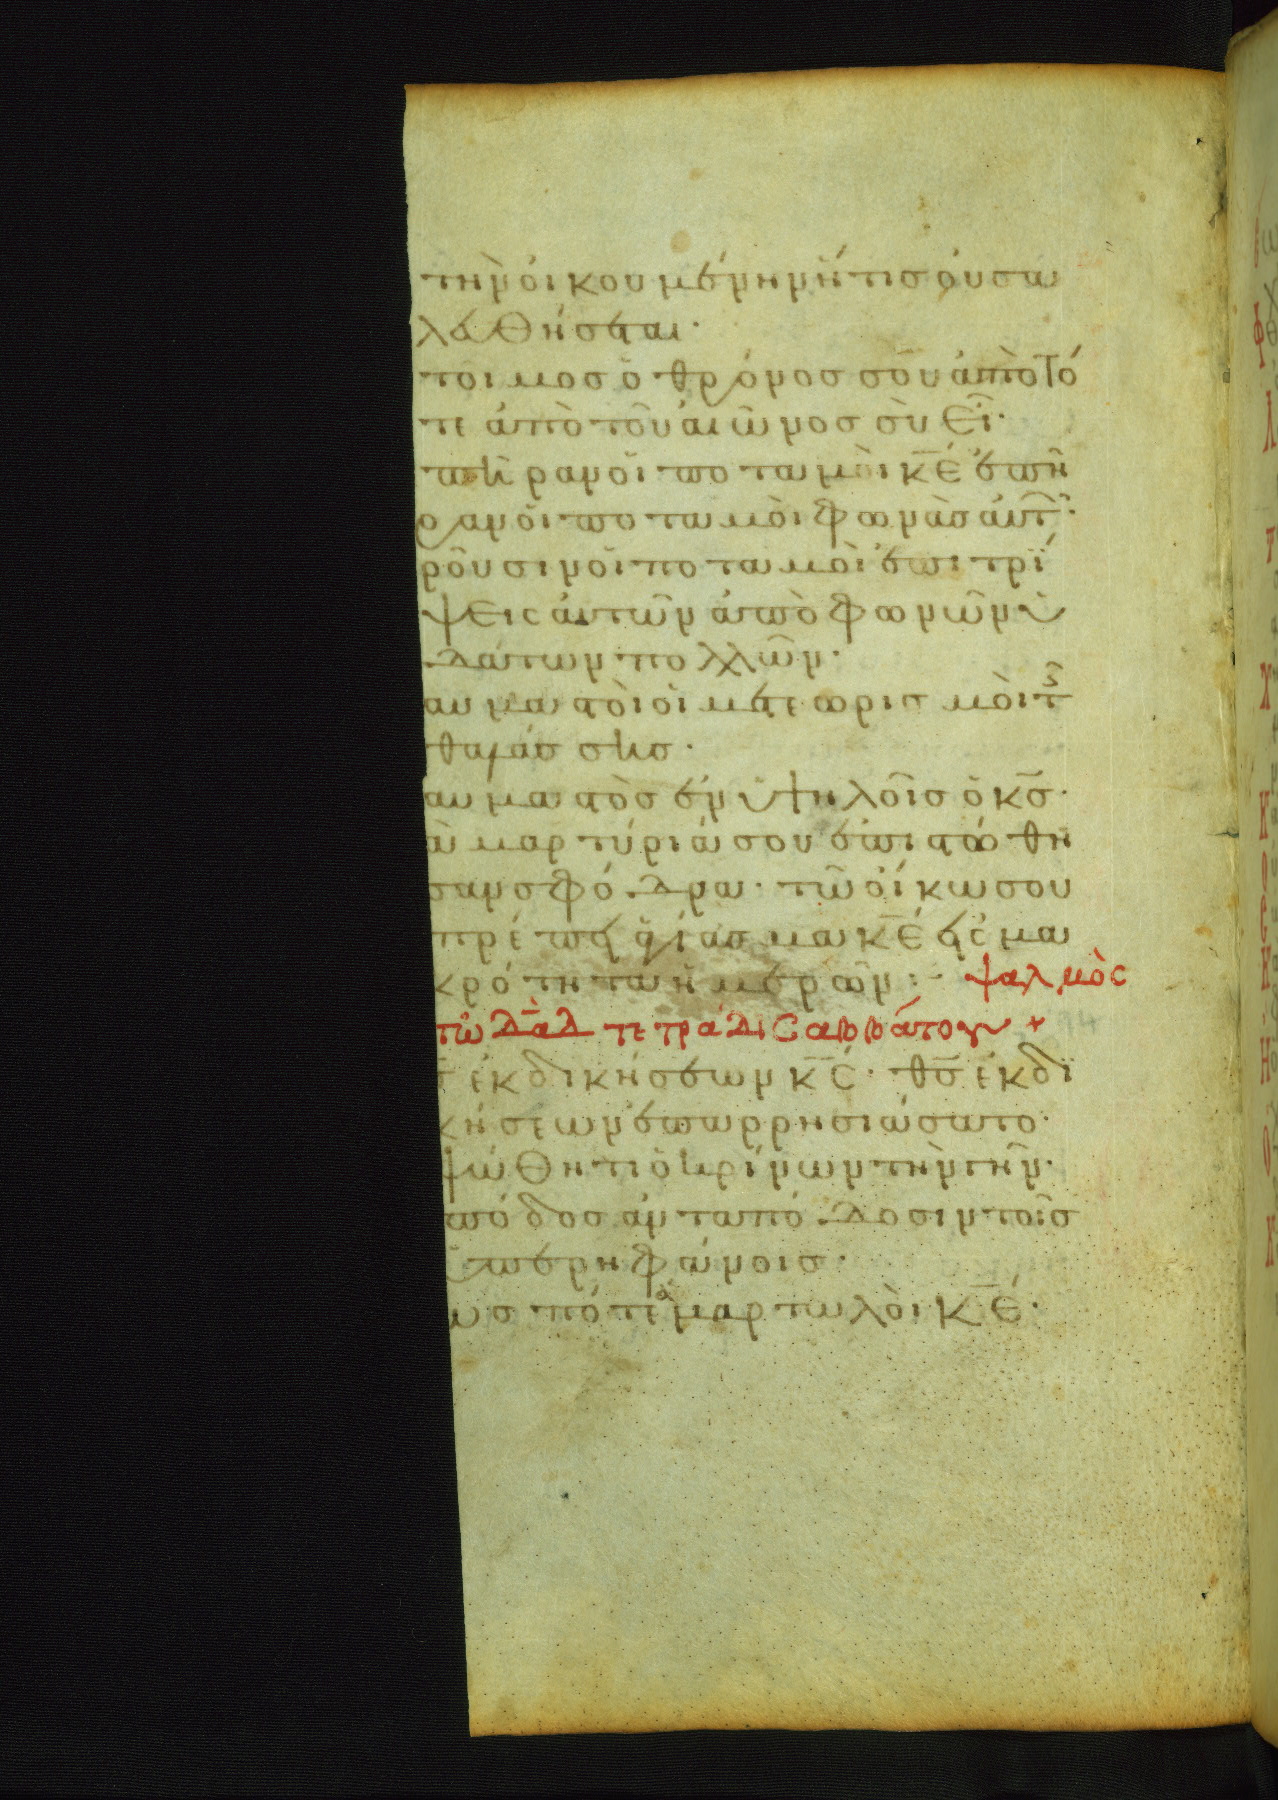 τὴν ὀικουμένην ἥτις ὀυ σα
λευθήσεται·
τοιμος ὁ θρόνος σου ἀπὸ τό
τε ἀπὸ τοῦ αιῶνος σὺ εἶ·
πῆραν ὁι ποταμὸι κ̅ε̅ ἐπῆ
ραν ὁι ποταμὸι φωνὰσ αὐτ·
ροῦσιν ὁι ποταμὸι ἐπιτρί
ψεις ἀυτῶν ἀπὸ φωνῶν ὑ
δάτων πολλῶν·
αυμαστὸι ὁι μετεωρισμὸι τ
θαλάσσης·
αυμαστὸσ ἐν ὑψηλοῖσ ὁ κ̅σ̅·
ὰ μαρτύριά σου ἐπιστώθη
σαν σφόδρα· τῶ ὀίκω σου
πρέπει ἁγίασμα κ̅ε̅ εἰς μα
κρότητα ἡμερῶν:- ψαλμὸς
τῶ δα̅δ̅ τετράδι σαββάτου +
σ̅ ἐκδικήσεων κ̅ς̅· θ̅σ̅ ἐκδι
κήσεων ἐπαρρησιάσατο·
ψώθητι ὁ κρίνων τὴν γῆν·
πόδος ἀνταπόδοσιν τοῖσ
ὑπερηφάνοισ·
ωσ πότε ἁμαρτωλὸι κ̅ε̅·